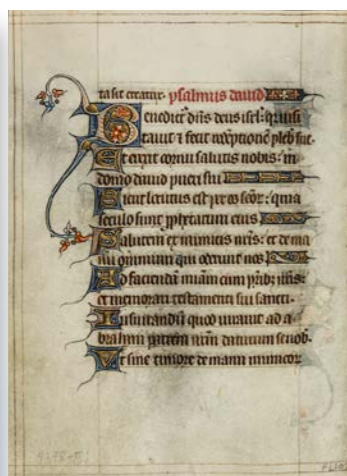 ta sit creatur. psalmus david
Benedict̄ dn̄s deus isrl̄: qr visi
tavit ⁊ fecit redēptionē pleb̄ sue.
Et erexit cornu salutis nobis: in
domo david pueri sui
Sicut locutus est per os scōr̄: qui a
seculo sunt ꝓphetarum eius
Salutem ex inimicis nr̄is: et de ma
nu omnium qui oderunt nos
Ad faciendā miām cum prib̄; nr̄is:
et memorari testamenti sui sancti.
Iusiurandū quod iuravit ad a
braham patrem nr̄m daturum se nob̄.
Ut sine timore de manu inimicor̄